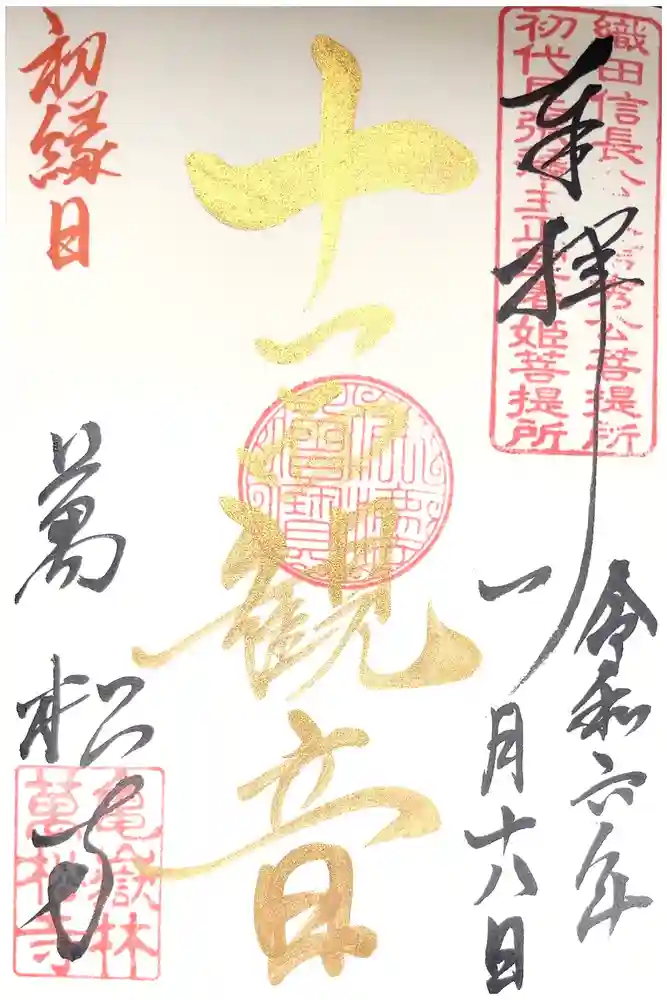 織田信長公父信秀公菩提所
初代尾張藩主正室春姫菩提所
奉拝
令和六年
一月十八日
十一面観音
初縁日
萬松寺
亀嶽林
萬松寺